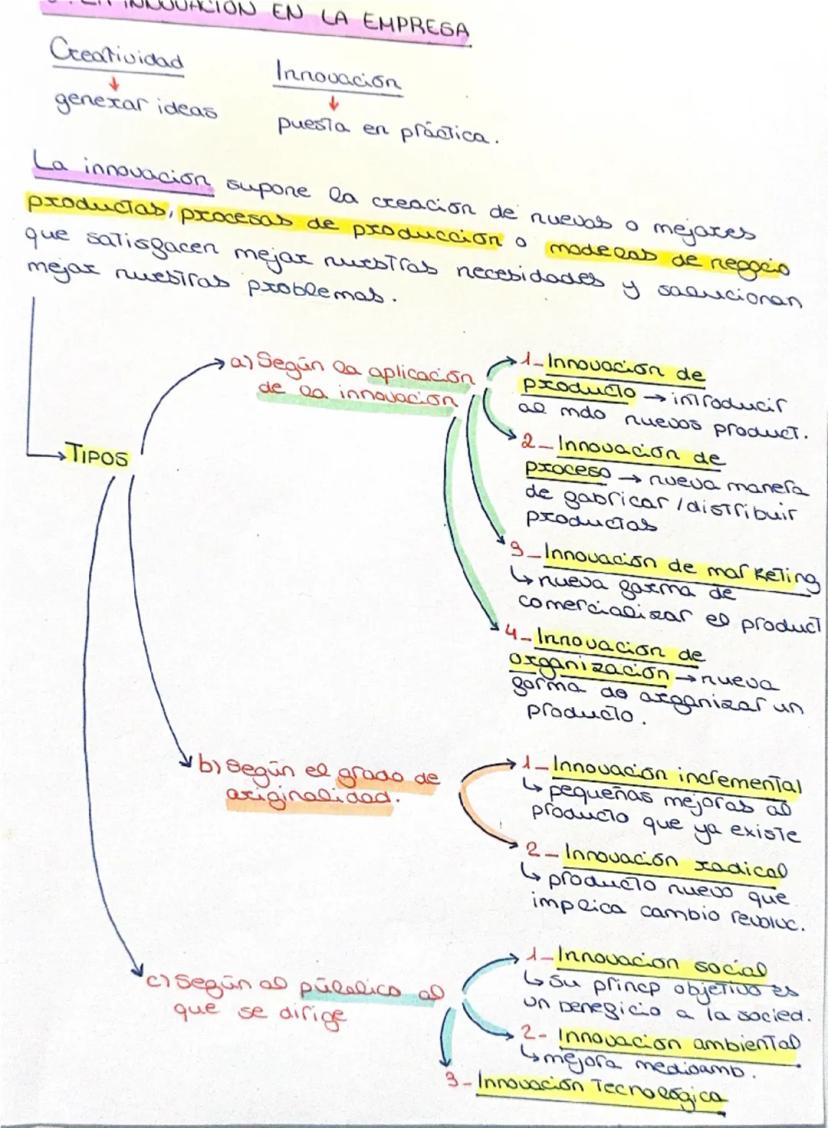 LA INNOVACIÓN EN LA EMPRESA
Creatividad
generar ideas
Innovación
puesta en práctica.
La innovación supone la creación de nuevos o mejores
productos, procesos de producción o modelos de negocio
que satisfacen mejor nuestras necesidades y solucionan
mejor nuestros problemas.
TIPOS
a) Según la aplicación
de la innovación
1- Innovación de
producto → introducir
al mdo nuevos product.
2- Innovación de
proceso → nueva manera
de fabricar / distribuir
productos
3- Innovación de marketing
↳ nueva forma de
comercializar el product
4- Innovación de
organización → nueva
forma de organizar un
producto.
b) Según el grado de
originalidad.
1- Innovación incremental
↳ pequeñas mejoras al
producto que ya existe
2- Innovación radical
↳ producto nuevo que
implica cambio revoluc.
c) Según al público al
que se dirige
1- Innovacion social
↳ Su princp objetivo es
un beneficio a la socied.
2- Innovacion ambiental
↳ mejora medioamb.
3- Innovación Tecnológica